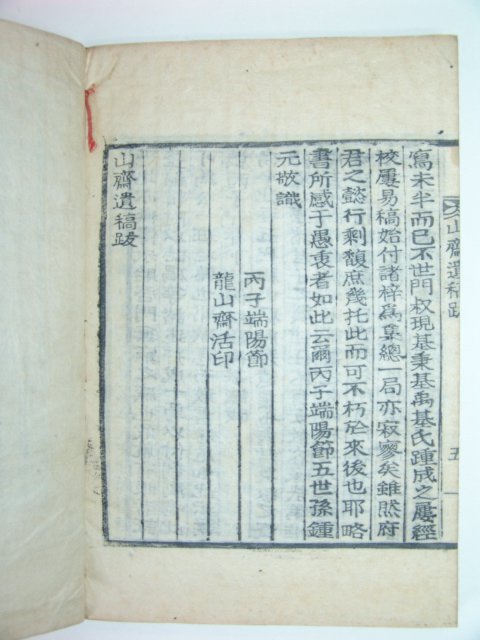 山齋遺稿跋
五
寫未半而已不世門叔現基秉基禹基氏踵成之屢經
校屢易稿始付諸梓爲彙總一局亦寂寥矣雖然府
君之懿行剩馥庶幾托此而可不朽於來後也耶略
書所感于愚衷者如此云爾丙子端陽節五世孫鍾
元敬識
丙子端陽節
龍山齋活印
山齋遺稿跋